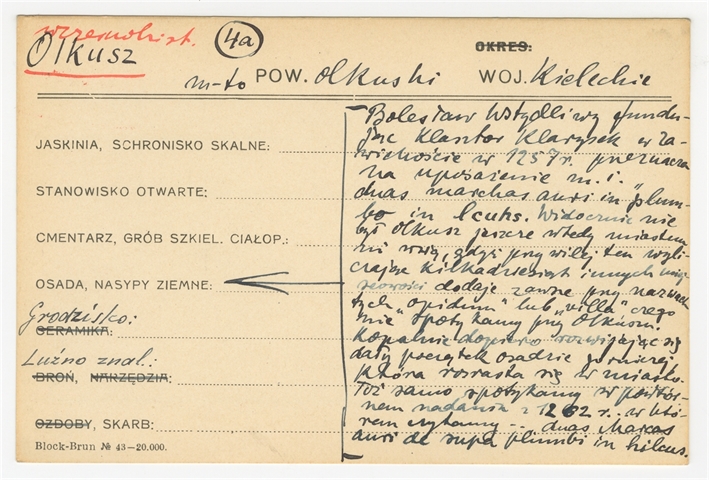 wczesnohist.
Olkusz
4a
OKRES:
m-to POW. olkuski WOJ. Kieleckie
JASKINIA, SCHRONISKO SKALNE:
STANOWISKO OTWARTE:
CMENTARZ, GRÓB SZKIEL. CIAŁOP.:
OSADA, NASYPY ZIEMNE:
Grodzisko:
CERAMIKA:
Luźno znal.:
BROŃ, NARZĘDZIA:
OZDOBY, SKARB:
Block-Brun № 43-20.000.
Bolesław Wstydliwy fundu-
jąc klasztor Klarysek w Za-
wichoście w 1257 r. przeznacza
na uposażenie m. i.
duas marchas auri in "plum-
bo in Ilcuhs. Widocznie nie
był Olkusz jeszcze wtedy miastem
ni wsią, gdyż przywilej ten wyli-
czając kilkadziesiąt innych miej
scowości dodaje zawsze przy nazwach
tych „opidum" lub „villa" czego
nie spotykamy przy Olkuszu.
Kopalnie dopiero rozwijając się
dały początek osadzie górniczej
która rozrasta się w miasto.
Toż samo spotykamy w powtór-
nem nadaniu z 1262 r. w któ-
rem czytamy -- duas Marcas
auri de supa plumbi in hilcus.